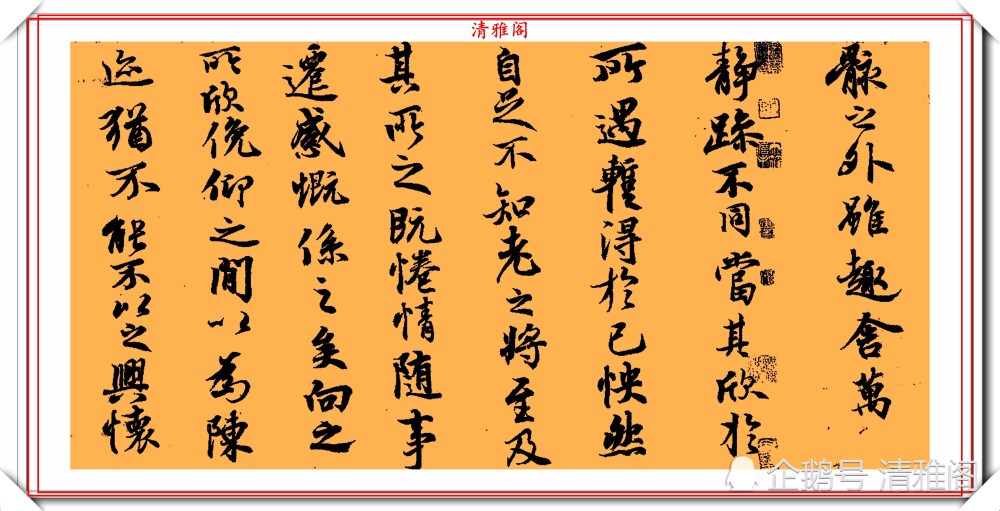 清雅阁
骸之外雖趣舍萬
静躁不同當其欣於
所遇暫得於己怏然
自足不知老之將至及
其所之既惓情随事
遷感慨係之矣向之
所欣俛仰之間以為陳
迹猶不能不以之興懷
企鹅号 清雅阁